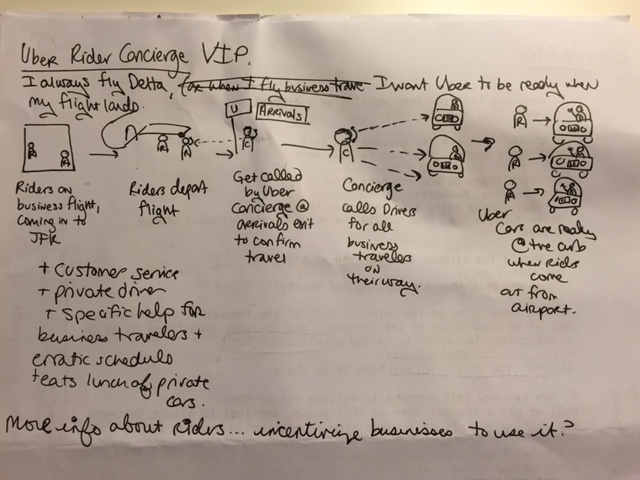 Uber Rider Concierge VIP.
I always fly Delta, for when I fly business trave I want Uber to be ready when
my flight lands.
U
ARRIVALS
C
C
Riders on
business flight,
coming in to
JFK
Riders depart
flight
Get called
by Uber
Concierge @
arrivals exit
to confirm
travel
Concierge
calls Drivers
for all
business
travelers
on
their way.
Uber
Cars are ready
@ the curb
when Riders
come
out from
airport.
+ customer service
+ private driver
+ specific help for
business travelers +
erratic schedule
+ eats lunch of private
cars.
More info about Riders... incentivize businesses to use it?